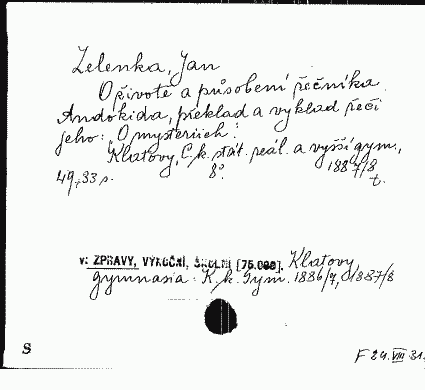 Zelenka, Jan
O životě a působení řečníka
Andokida, překlad a výklad řeči
jeho: "O mysteriích".
Klatovy, C.k. stát. reál. a vyšší gym.,
49, 33 s. 8°. 1887/8
t.
v: ZPRÁVY, VÝROČNÍ, ŠKOLNÍ [75.098]. Klatovy,
gymnasia: K.k. Gym. 1886/7, 1887/8
S
F 24. VIII 31.